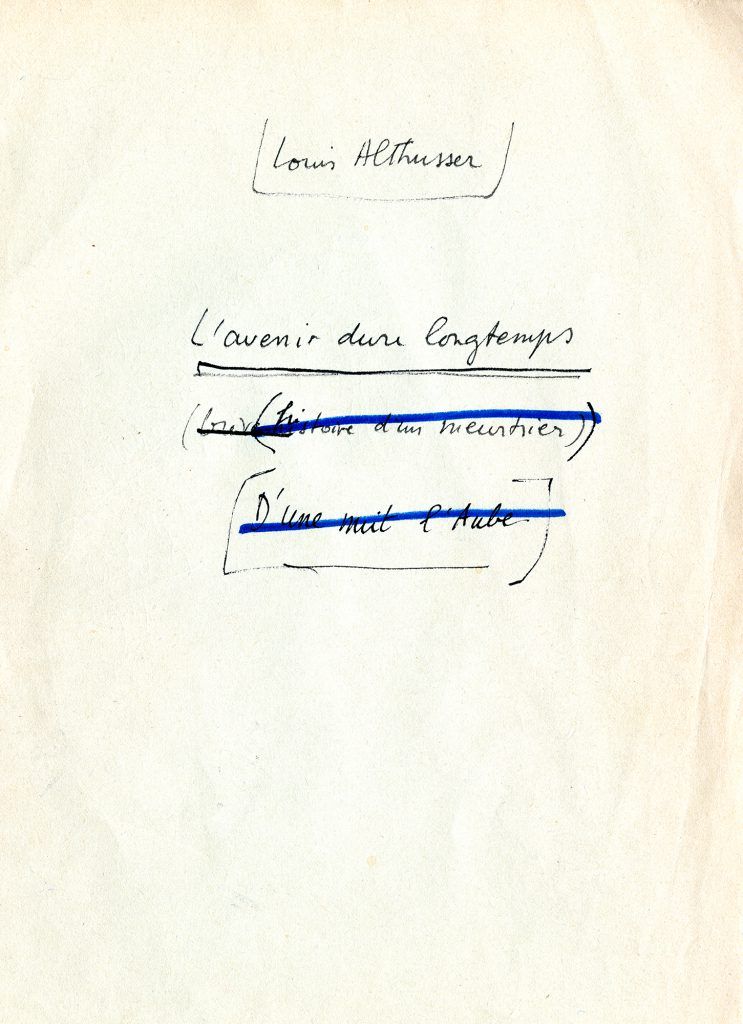 Louis Althusser
L'avenir dure longtemps
(histoire d'un meurtrier))
[D'une nuit l'Aube]